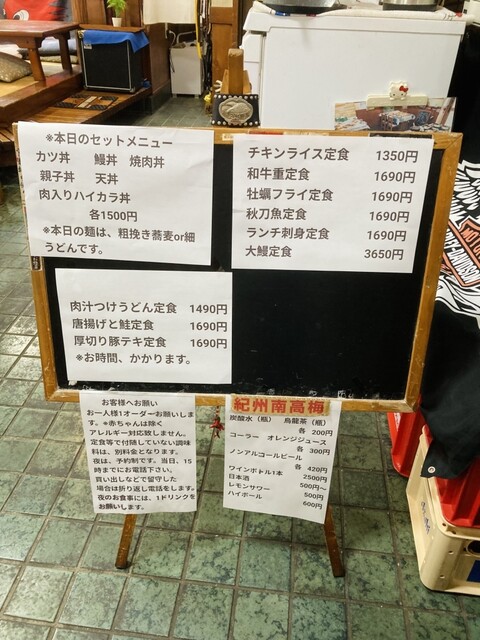 ※本日のセットメニュー
カツ丼　鰻丼　焼肉丼
親子丼　天丼
肉入りハイカラ丼
各1500円
※本日の麺は、粗挽き蕎麦or細
うどんです。
チキンライス定食　1350円
和牛重定食　1690円
牡蠣フライ定食　1690円
秋刀魚定食　1690円
ランチ刺身定食　1690円
大鰻定食　3650円
肉汁つけうどん定食　1490円
唐揚げと鮭定食　1690円
厚切り豚テキ定食　1690円
※お時間、かかります。
お客様へお願い
お一人様1オーダーお願いしま
す。※赤ちゃんは除く
アレルギー対応致しません。
定食等で付随していない調味
料は、別料金となります。
夜は、予約制です。当日、15
時までにお電話下さい。
買い出しなどで留守した
場合は折り返し電話をします。
夜のお食事には、1ドリンクを
お願いします。
紀州南高梅
炭酸水（瓶）　烏龍茶（瓶）
各　200円
コーラー　オレンジジュース
各　300円
ノンアルコールビール
各　420円
ワインボトル1本　2500円
日本酒　500円〜
レモンサワー　500円
ハイボール　600円